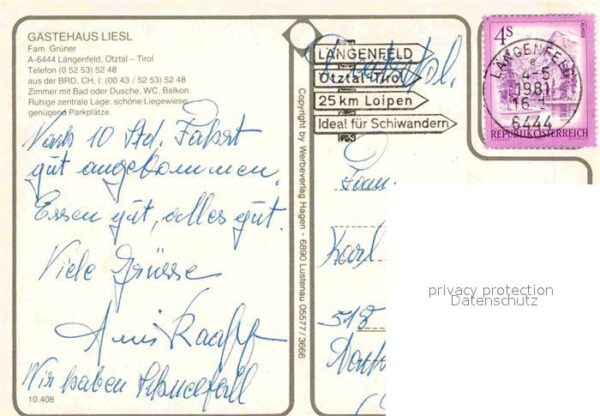 GÄSTEHAUS LIESL
Fam. Grüner
A-6444 Längenfeld, Ötztal – Tirol
Telefon (0 52 53) 52 48
aus der BRD, CH, I: (00 43 / 52 53) 52 48
Zimmer mit Bad oder Dusche, WC, Balkon.
Ruhige zentrale Lage: schöne Liegewiese,
genügend Parkplätze
Nach 10 Std. Fahrt
gut angekommen.
Essen gut, alles gut.
Viele Grüsse
Wir haben Schneefall
10.408
Copyright by Werbeverlag Hagen - 6890 Lustenau 05577/3666
LÄNGENFELD
Ötztal-Tirol
25 km Loipen
Ideal für Schiwandern
4S
LÄNGENFELD
4-5
1981
6444
REPUBLIK ÖSTERREICH
Fam.
Karl
518
privacy protection
Datenschutz